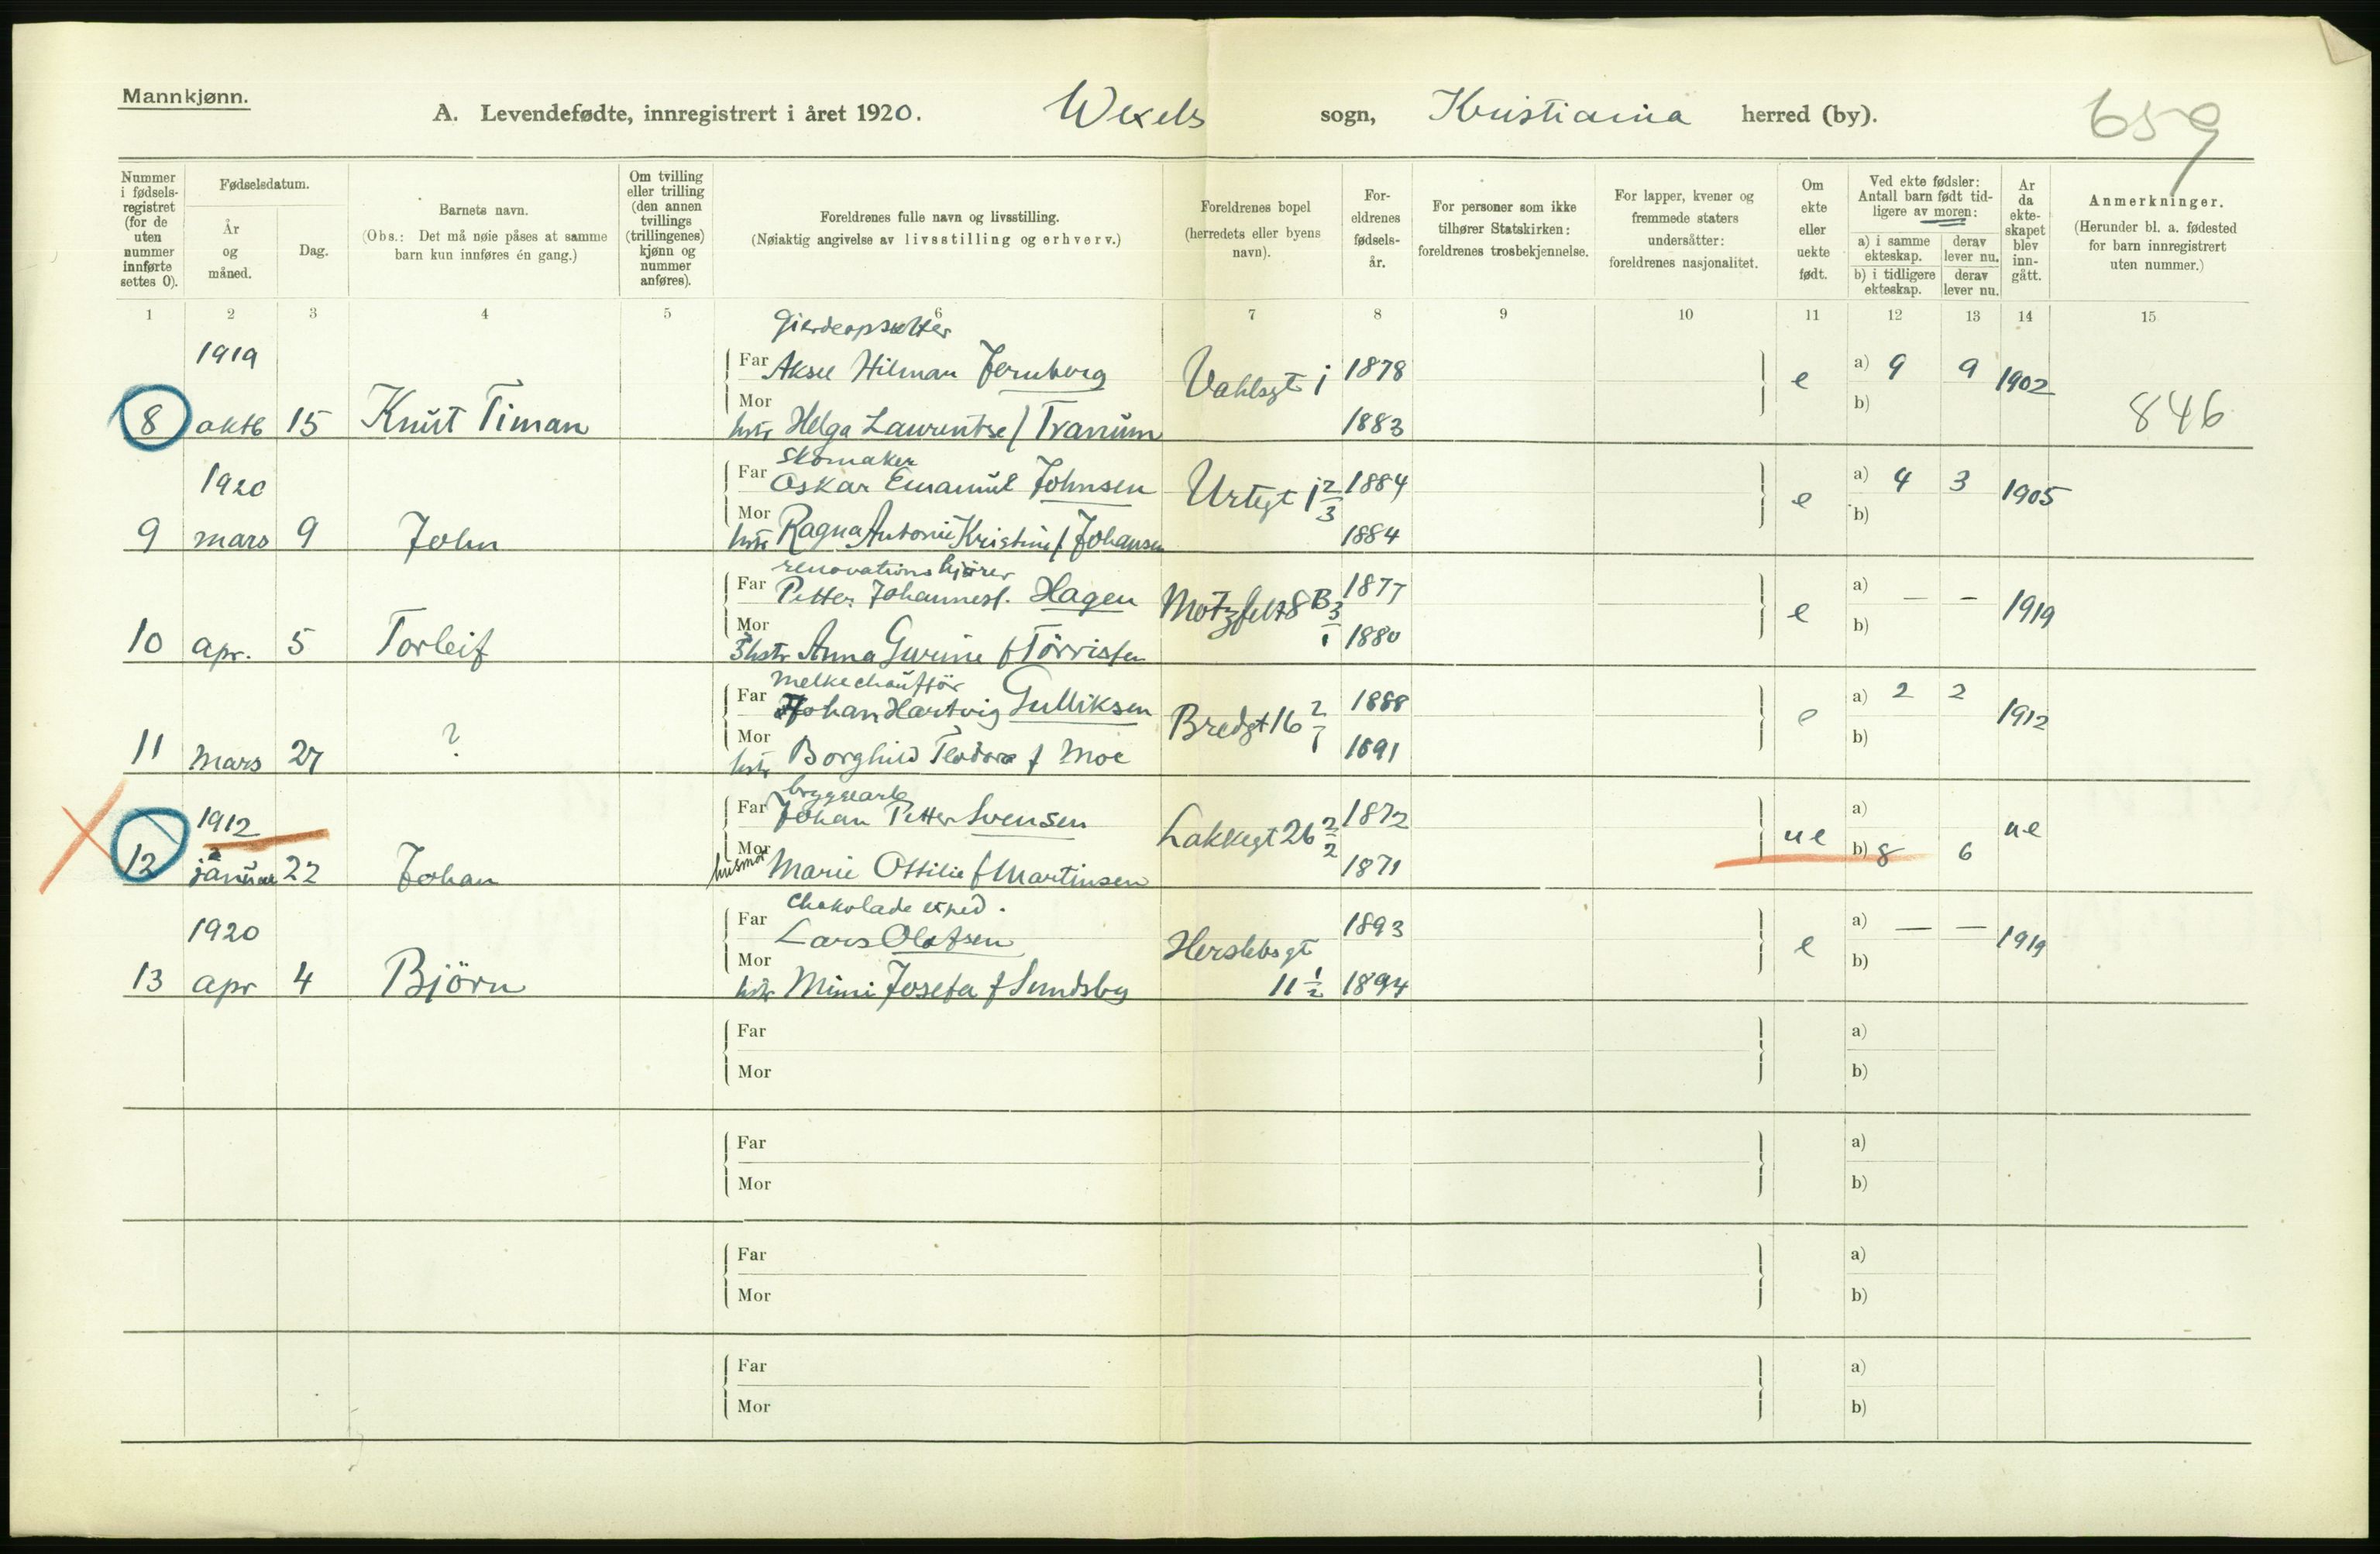 Mannkjønn.
A. Levendefødte, innregistrert i året 1920. Wexels sogn, Kristiania herred (by). 659
Nummer i fødsels-registret (for de uten nummer innførte settes 0).
Fødselsdatum.
År og måned.
Dag.
Barnets navn.
(Obs.: Det må nøie påses at samme barn kun innføres én gang.)
Om tvilling eller trilling (den annen tvillings (trillingenes) kjønn og nummer anføres).
Foreldrenes fulle navn og livsstilling.
(Nøiaktig angivelse av livsstilling og erhverv.)
Foreldrenes bopel (herredets eller byens navn).
For-eldrenes fødsels-år.
For personer som ikke tilhører Statskirken: foreldrenes trosbekjennelse.
For lapper, kvener og fremmede staters undersåtter: foreldrenes nasjonalitet.
Om ekte eller uekte født.
Ved ekte fødsler: Antall barn født tid-ligere av moren:
a) i samme ekteskap. derav lever nu.
b) i tidligere ekteskap. derav lever nu.
År da ekte-skapet blev inn-gått.
Anmerkninger.
(Herunder bl. a. fødested for barn innregistrert uten nummer.)
1 2 3 4 5 6 7 8 9 10 11 12 13 14 15
Gjerdeopsetter
1919 Far Aksel Hilmar Fernberg Vahlsgt 1 1878 e a) 9 9 1902
8 oktb 15 Knut Timan Mor hstr Helga Laurentse f Tranum 1883 b) 846
skomaker
1920 Far Oskar Emanuel Johnsen Urtegt 1 2/3 1884 e a) 4 3 1905
9 mars 9 John Mor hstr Ragna Antonie Kristine f Johansen 1884 b)
renovationskjører
Far Petter Johannesf. Hagen Motzfelts 8 B 3/1 1877 e a) — — 1919
10 apr. 5 Torleif Mor hstr Anna Gurine f Törrissen 1880 b)
melkechaufför
Far Johan Hartvig Gulliksen Bredgt 16 2/7 1888 e a) 2 2 1912
11 mars 27 ? Mor hstr Borghild Teodora f Moe 1891 b)
bryggearb
1912 Far Johan Petter Svensen Lakkegt 26 2/2 1872 ue a) ue
12 januar 22 Johan Mor husmor Marie Ottilie f Martinsen 1871 b) 8 6
Chokolade exped.
1920 Far Lars Olafsen Herslebsgt 1893 e a) — — 1919
13 apr 4 Björn Mor hstr Mimi Josefa f Sundsby 11 1/2 1894 b)
Far a)
Mor b)
Far a)
Mor b)
Far a)
Mor b)
Far a)
Mor b)